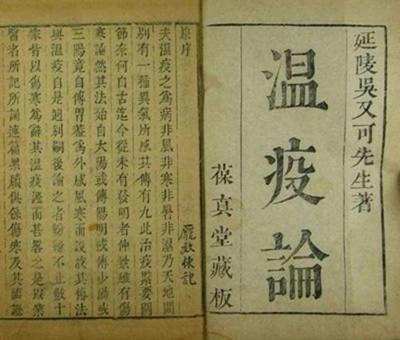 延陵吳又可先生著
溫疫論
葆真堂藏板
原序
夫溫疫之為病非風非寒非暑非濕乃天地間
別有一種異氣所感其傳有九此治疫緊要關
節奈何自古迄今從未有發明者仲景雖有傷
寒論然其法始自太陽或傳陽明或傳少陽或
三陽竟自傳胃蓋為外感風寒而設故其傳法
與溫疫自是迥別嗣後論之者紛紛不止數十
家皆以傷寒為辭其溫疫證而甚畧之是以業
醫者所記所誦連篇累牘俱係傷寒及其臨證